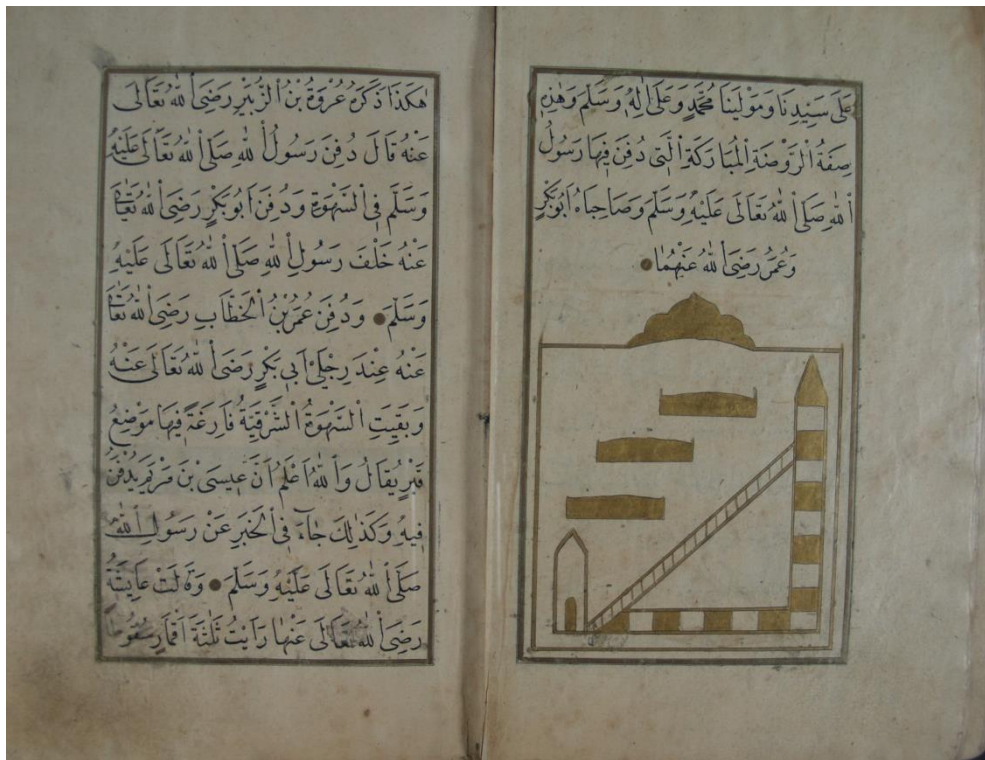 عَلَى سَيِّدِنَا وَمَوْلَيْنَا مُحَمَّدٍ وَعَلَى اٰلِهٖ وَسَلَّمَ وَهٰذِهٖ
صِفَةُ الرَّوْضَةِ الْمُبَارَكَةِ الَّتِى دُفِنَ فِيهَا رَسُولُ
اللّٰهِ صَلَّى اللّٰهُ تَعَالَى عَلَيْهِ وَسَلَّمَ وَصَاحِبَاهُ اَبُو بَكْرٍ
وَعُمَرُ رَضِىَ اللّٰهُ عَنْهُمَا
هٰكَذَا ذَكَرَهُ عُرْوَةُ بْنُ الزُّبَيْرِ رَضِىَ اللّٰهُ تَعَالَى
عَنْهُ قَالَ دُفِنَ رَسُولُ اللّٰهِ صَلَّى اللّٰهُ تَعَالَى عَلَيْهِ
وَسَلَّمَ فِى السَّهْوَةِ وَدُفِنَ اَبُو بَكْرٍ رَضِىَ اللّٰهُ تَعَالَى
عَنْهُ خَلْفَ رَسُولِ اللّٰهِ صَلَّى اللّٰهُ تَعَالَى عَلَيْهِ
وَسَلَّمَ وَدُفِنَ عُمَرُ بْنُ الْخَطَّابِ رَضِىَ اللّٰهُ تَعَالَى
عَنْهُ عِنْدَ رِجْلَىْ اَبِى بَكْرٍ رَضِىَ اللّٰهُ تَعَالَى عَنْهُ
وَبَقِيَتِ السَّهْوَةُ الشَّرْقِيَّةُ فَارِغَةً فِيهَا مَوْضِعُ
قَبْرٍ يُقَالُ وَاللّٰهُ اَعْلَمُ اَنَّ عِيسَى بْنَ مَرْيَمَ يُدْفَنُ
فِيهِ وَكَذٰلِكَ جَاءَ فِى الْخَبَرِ عَنْ رَسُولِ اللّٰهِ
صَلَّى اللّٰهُ تَعَالَى عَلَيْهِ وَسَلَّمَ وَقَالَتْ عَايِشَةُ
رَضِىَ اللّٰهُ تَعَالَى عَنْهَا رَاَيْتُ ثَلٰثَةَ اَقْمَارٍ سُقُوطًا